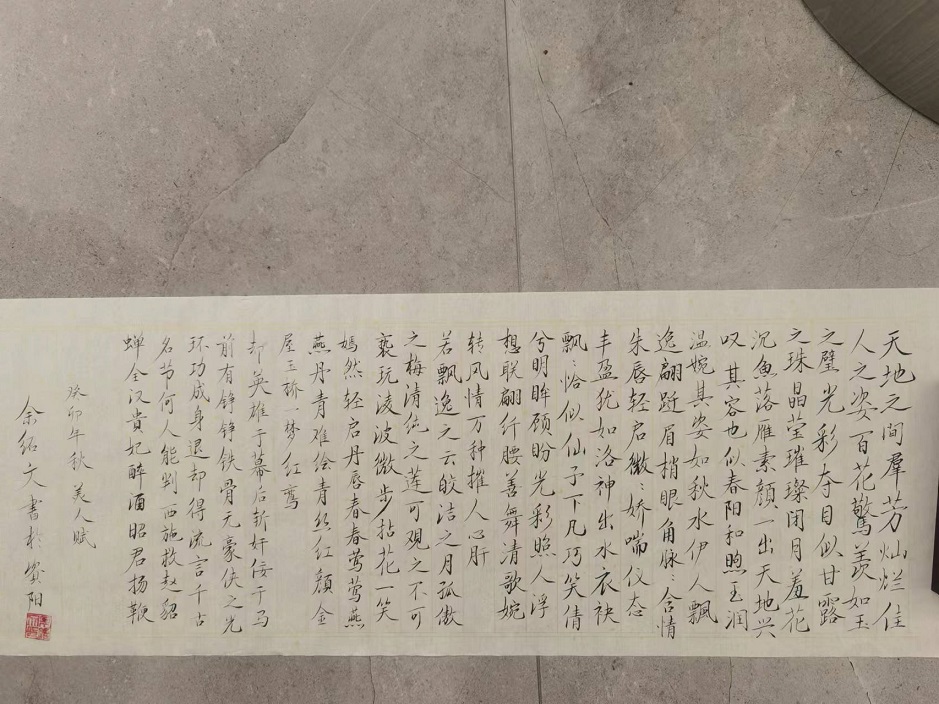 天地之间羣芳灿烂佳
人之姿百花驚羡如玉
之璧光彩夺目似甘露
之珠晶莹璀璨闭月羞花
沉魚落雁素顏一出天地兴
叹其容也似春阳和煦玉润
温婉其姿如秋水伊人飘
逸翩跹眉梢眼角脉:含情
朱唇轻启微:娇喘仪态
丰盈犹如洛神出水衣袂
飘:恰似仙子下凡巧笑倩
兮明眸顾盼光彩照人浮
想联翩纤腰善舞清歌婉
转风情万种摧人心肝
若飘逸之云皎洁之月孤傲
之梅清纯之莲可观之不可
亵玩凌波微步拈花一笑
嫣然轻启丹唇春春莺莺燕
燕丹青难绘青丝红颜金
屋玉骄一梦红鸾
却英雄于幕后斩奸佞于马
前有铮铮铁骨元豪侠之光
环功成身退却得流言千古
名节何人能剀西施救赵貂
蝉全汉貴妃醉酒昭君扬鞭
癸卯年秋 美人赋
余绍文書於 资阳